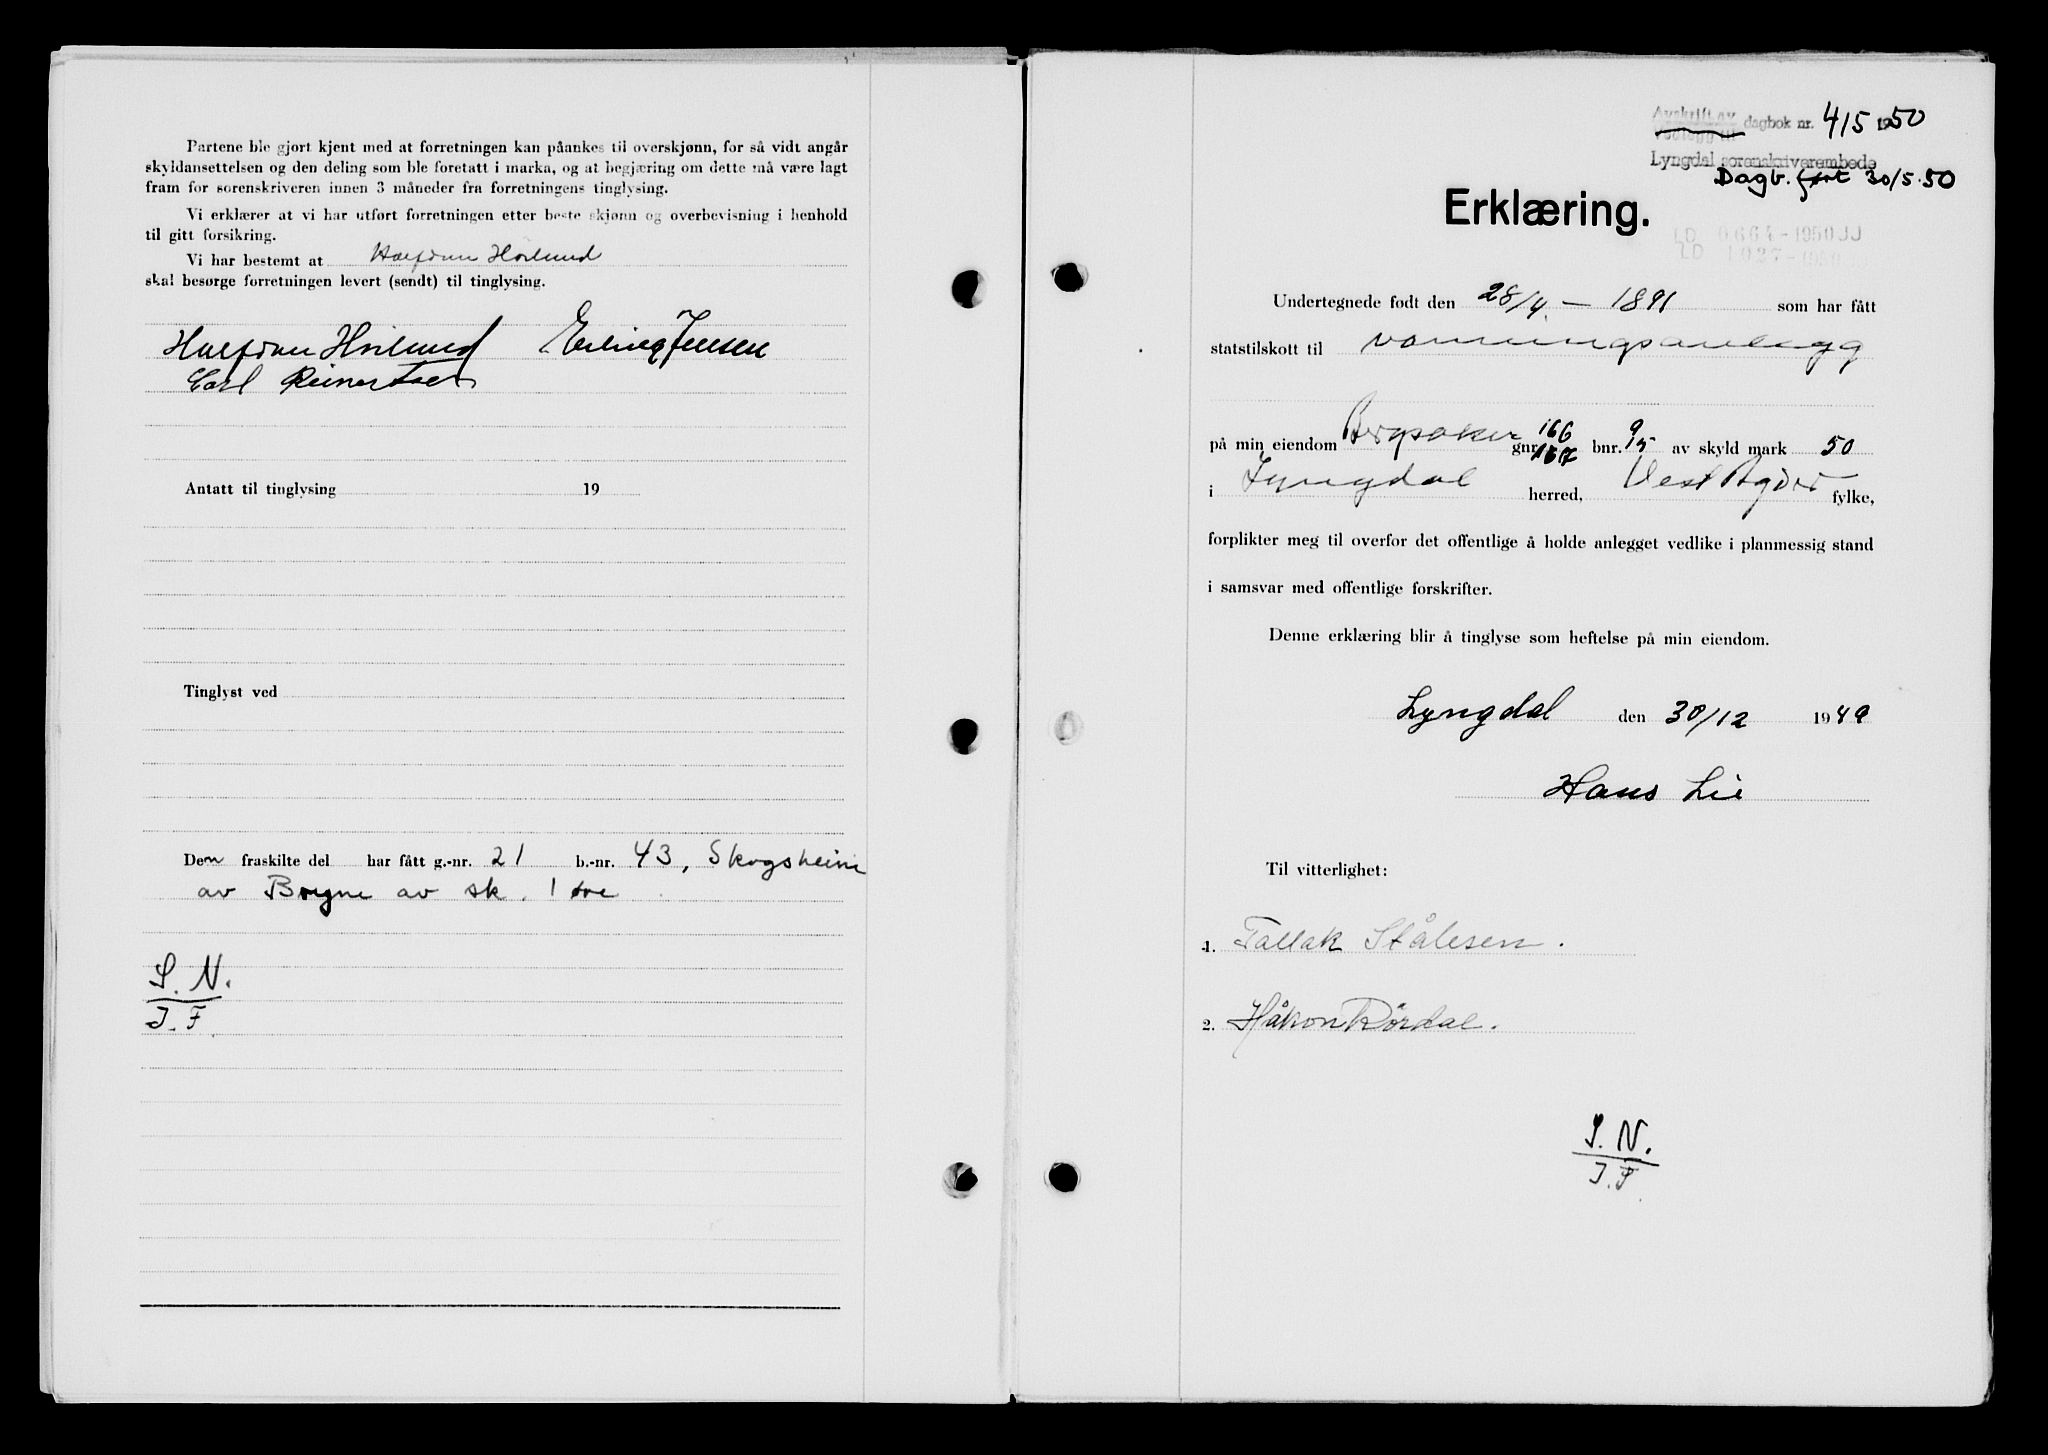 Partene ble gjort kjent med at forretningen kan påankes til overskjønn, for så vidt angår
skyldansettelsen og den deling som ble foretatt i marka, og at begjæring om dette må være lagt
fram for sorenskriveren innen 3 måneder fra forretningens tinglysing.
Vi erklærer at vi har utført forretningen etter beste skjønn og overbevisning i henhold
til gitt forsikring.
Vi har bestemt at Halfdan
skal besørge forretningen levert (sendt) til tinglysing.
Halfdan Erling Jensen
Carl Reinertsen
Antatt til tinglysing 19
Tinglyst ved
Den fraskilte del har fått g.-nr. 21 b.-nr. 43, Skogsheim
av Bryne av sk. 1 øre
S. N.
J. F.
Avskrift av dagbok nr. 415 1950
Lyngdal sorenskriverembede
Dagb. ført 30/5-50
Erklæring.
LD 0664-1950 JJ
LD 1027-1950
Undertegnede født den 28/4 - 1891 som har fått
statstilskott til vanningsanlegg
på min eiendom Bergsaker gnr. 166 167 bnr. 9 15 av skyld mark 50
i Lyngdal herred, Vest Agder fylke,
forplikter meg til overfor det offentlige å holde anlegget vedlike i planmessig stand
i samsvar med offentlige forskrifter.
Denne erklæring blir å tinglyse som heftelse på min eiendom.
Lyngdal den 30/12 1949
Hans Lie
Til vitterlighet:
1. Tallak Stålesen.
2. Håkon Rørdal.
S. N.
J. F.